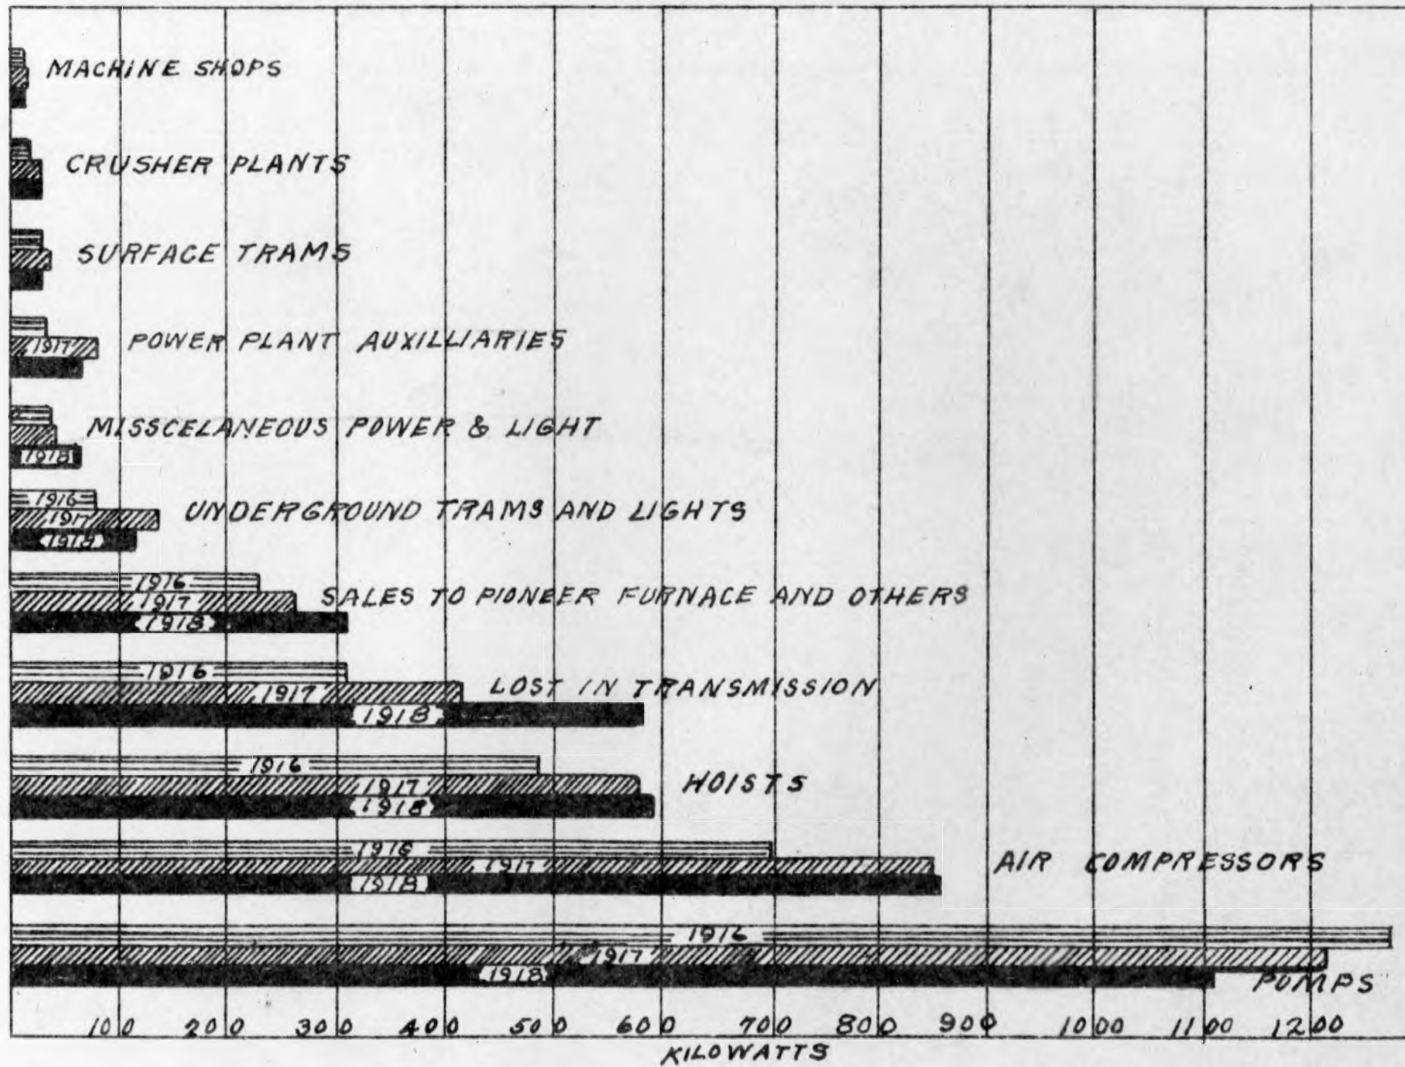 MACHINE SHOPS
CRUSHER PLANTS
SURFACE TRAMS
1917
POWER PLANT AUXILLIARIES
MISSCELANEOUS POWER & LIGHT
1918
1916
1917
UNDERGROUND TRAMS AND LIGHTS
1918
1916
1917
SALES TO PIONEER FURNACE AND OTHERS
1918
1916
1917
LOST IN TRANSMISSION
1918
1916
1917
HOISTS
1918
1916
1917
AIR COMPRESSORS
1918
1916
1917
1918
PUMPS
100 200 300 400 500 600 700 800 900 1000 1100 1200
KILOWATTS